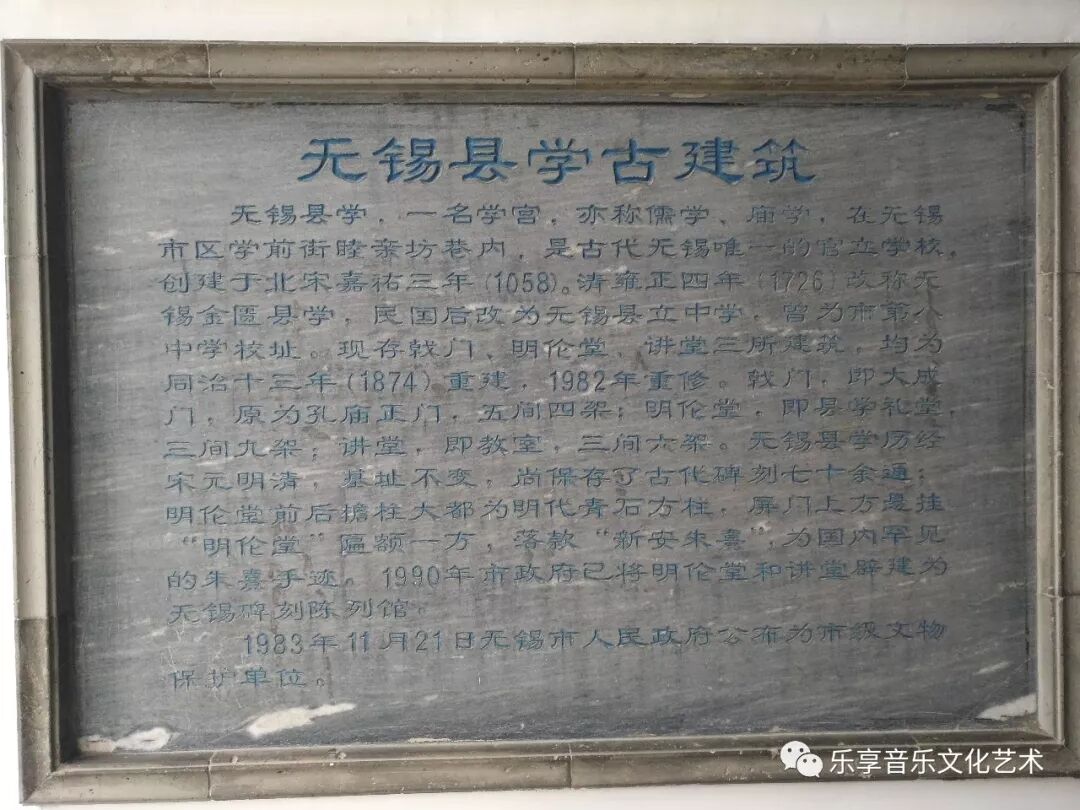 无锡县学古建筑
无锡县学，一名学宫，亦称儒学、庙学，在无锡
市区学前街睦亲坊巷内，是古代无锡唯一的官立学校，
创建于北宋嘉祐三年(1058)。清雍正四年(1726)改称无
锡金匮县学，民国后改为无锡县立中学，曾为市第八
中学校址。现存戟门、明伦堂、讲堂三所建筑，均为
同治十三年(1874)重建，1982年重修。戟门，即大成
门，原为孔庙正门，五间四架；明伦堂，即县学礼堂，
三间九架；讲堂，即教室，三间六架。无锡县学历经
宋元明清，基址不变，尚保存了古代碑刻七十余通；
明伦堂前后檐柱大都为明代青石方柱，屏门上方悬挂
“明伦堂”匾额一方，落款“新安朱熹”，为国内罕见
的朱熹手迹。1990年市政府已将明伦堂和讲堂辟建为
无锡碑刻陈列馆。
1983年11月21日无锡市人民政府公布为市级文物
保护单位。
乐享音乐文化艺术